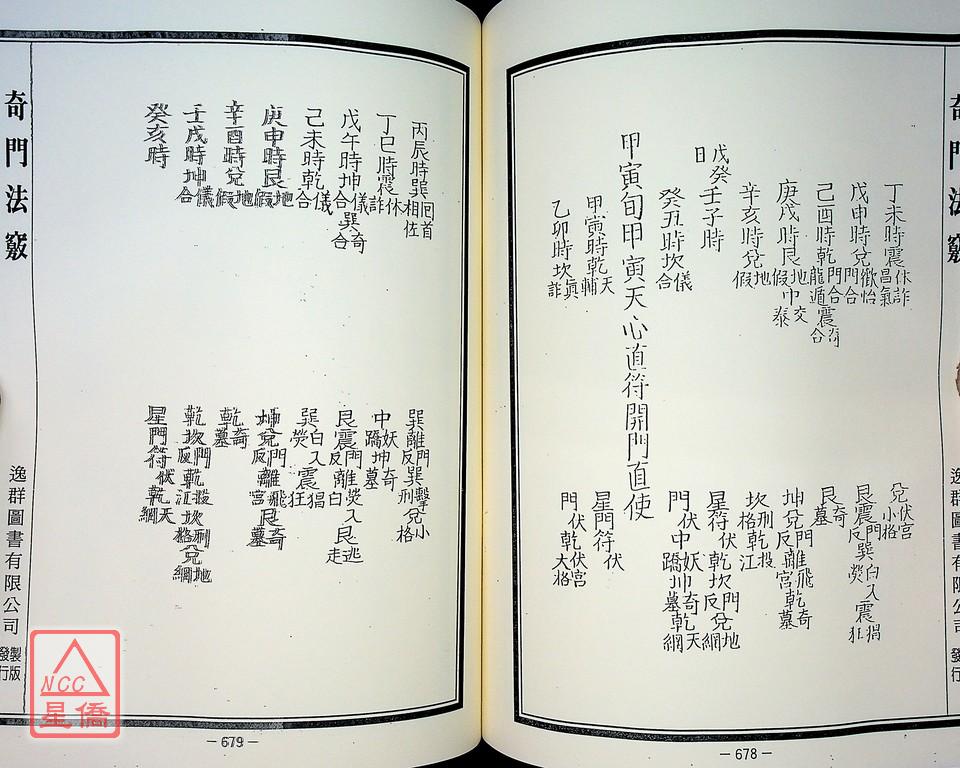 奇門法竅
丁未時震休詐昌氣
戊申時兌歡怡門合
己酉時乾門合龍遁震奇合
庚戌時艮地假巾交泰
辛亥時兌地假
戊癸日壬子時
癸丑時坎儀合
甲寅旬甲寅天心直符開門直使
甲寅時乾天輔
乙卯時坎真詐
兌伏宮小格
艮震門反巽白入熒震猖狂
艮奇墓
坤兌門反離飛宮乾奇墓
坎刑格乾投江
星符伏乾坎門反兌地網
門伏中妖蹻坤奇墓乾天網
星門符伏
門伏乾伏宮大格
逸群圖書有限公司
製版發行
－678－
丙辰時巽囘首相佐
丁巳時震休詐
戊午時坤儀合巽奇合
己未時乾儀合
庚申時艮地假
辛酉時兌地假
壬戌時坤儀合
癸亥時
巽離門反巽擊刑兌小格
中妖蹻坤奇墓
艮震門反離熒入白艮逃走
巽白入熒震猖狂
坤兌門反離飛宮艮奇墓
乾奇墓
乾坎門反乾投江坎刑格兌地網
星門符伏乾天網
奇門法竅
逸群圖書有限公司
製版發行
NCC
星僑
－679－